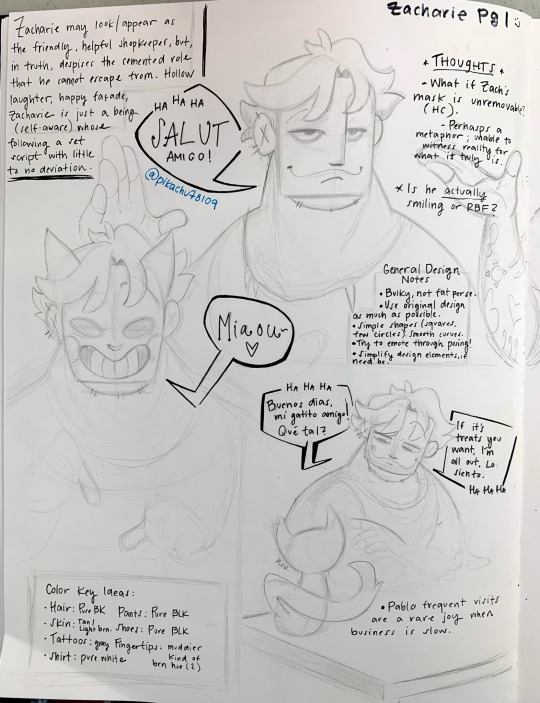 Zacharie Pg 1 :)
Zacharie may look/appear as
the friendly, helpful shopkeeper, but,
in truth, despises the cemented role
that he cannot escape from. Hollow
laughter, happy façade,
Zacharie is just a being
(self-aware) whose
following a set
script with little
to no deviation.
HA HA HA
SALUT
AMIGO!
@pikachu78109
* THOUGHTS *
- What if Zach's
mask is unremovable?
(HC).
- Perhaps a
metaphor; unable to
witness reality for
what it truly is.
* Is he actually
smiling or RBF?
General Design
Notes
• Bulky, not fat per se.
• Use original design
as much as possible.
• Simple shapes (squares,
few circles). Smooth curves.
• Try to emote through posing!
• Simplify design elements, if
need be.
Miaou~
♡
HA HA HA
Buenos dias,
mi gatito amigo!
Qué tal?
If it's
treats you
want, I'm
all out. Lo
siento.
HA HA HA
• Pablo frequent visits
are a rare joy when
business is slow.
Color Key Ideas:
• Hair: Pure BK Pants: Pure BLK
• Skin: Tan/Light brn. Shoes: Pure BLK
• Tattoos: gray Fingertips: muddier
• Shirt: pure white kind of
brn hue (?)